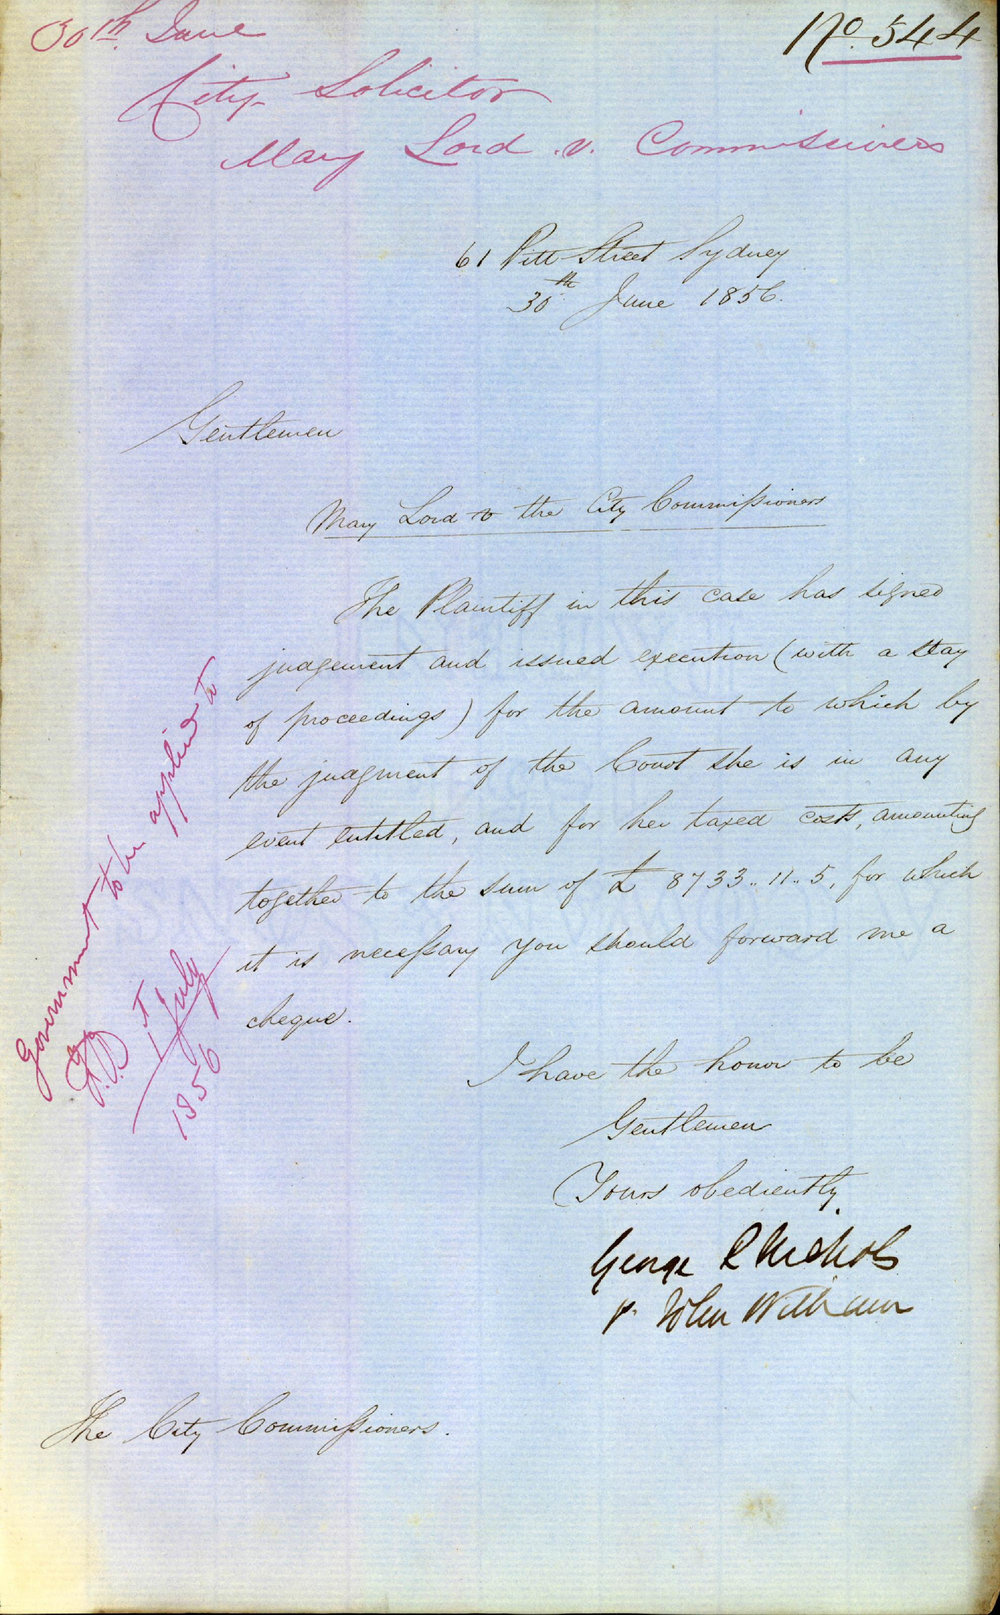 30th. June
No. 544
City Solicitor
Mary Lord v. Commissioners
61 Pitt Street Sydney
30th June 1856.
Gentlemen
Mary Lord v the City Commissioners
The Plaintiff in this case has signed
judgement and issued execution (with a stay
of proceedings) for the amount to which by
the judgment of the Court she is in any
event entitled, and for her taxed costs, amounting
together to the sum of £ 8733..11..5, for which
it is necessary you should forward me a
cheque.
I have the honor to be
Gentlemen
Yours obediently.
George R Nichols
p. John Williams
The City Commissioners.
Government to be applied to
1st July
1856